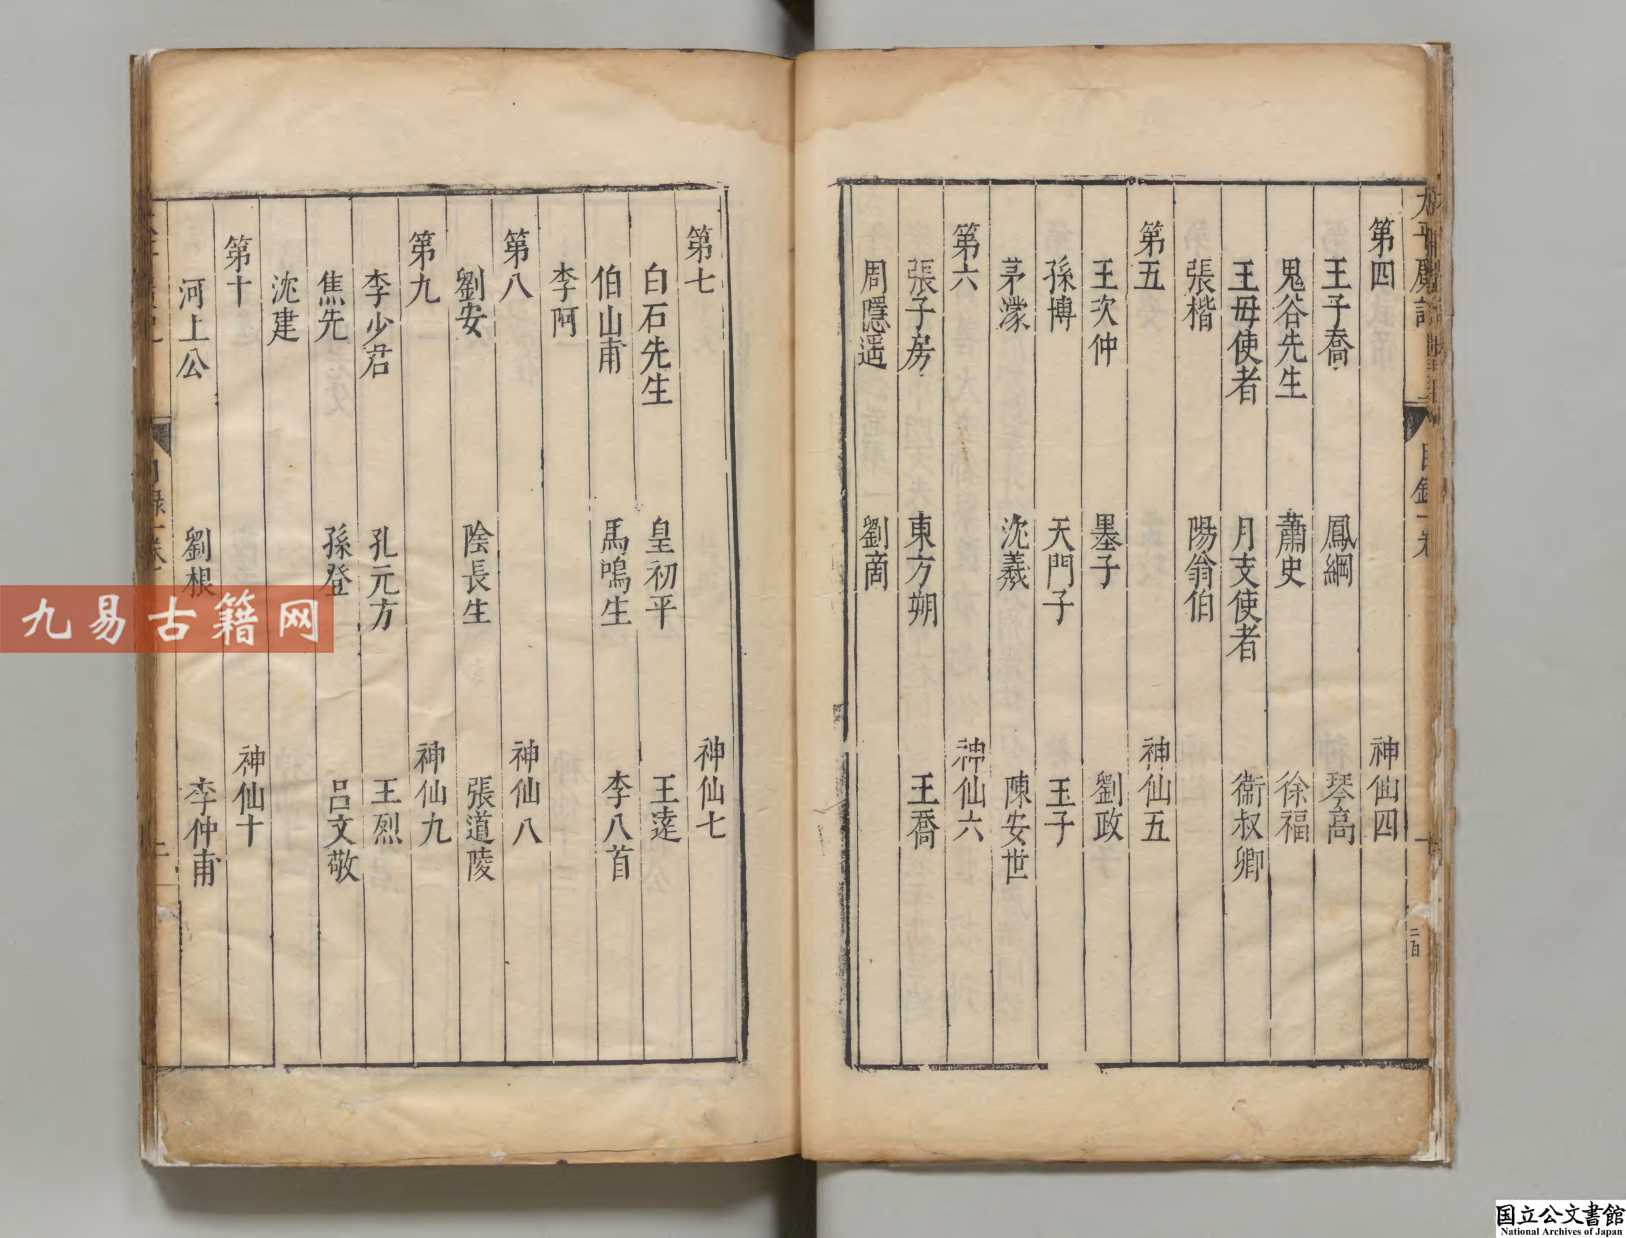 第四　神仙四
王子喬　鳳綱　琴高
鬼谷先生　蕭史　徐福
王毋使者　月支使者　衞叔卿
張楷　陽翁伯
第五　神仙五
王次仲　墨子　劉政
孫博　天門子　玉子
茅濛　沈羲　陳安世
第六　神仙六
張子房　東方朔　王喬
周隱遥　劉商
第七　神仙七
白石先生　皇初平　王遠
伯山甫　馬鳴生　李八首
李阿
第八　神仙八
劉安　陰長生　張道陵
第九　神仙九
李少君　孔元方　王烈
焦先　孫登　呂文敬
沈建
第十　神仙十
河上公　劉根　李仲甫
九易古籍网
国立公文書館
National Archives of Japan